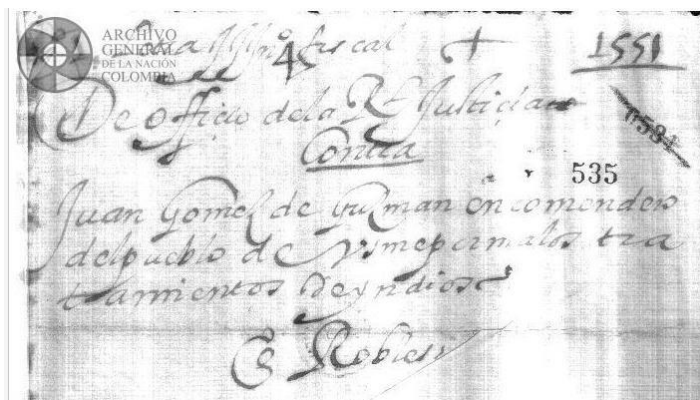 ARCHIVO
GENERAL
DE LA NACIÓN
COLOMBIA
fiscal
4
1551
De officio dela Rl Justicia
Contra
534
535
Juan Gomez de Guzman encomendero
del pueblo de Vsme por malos tra
tamientos de yndios
Es Robles